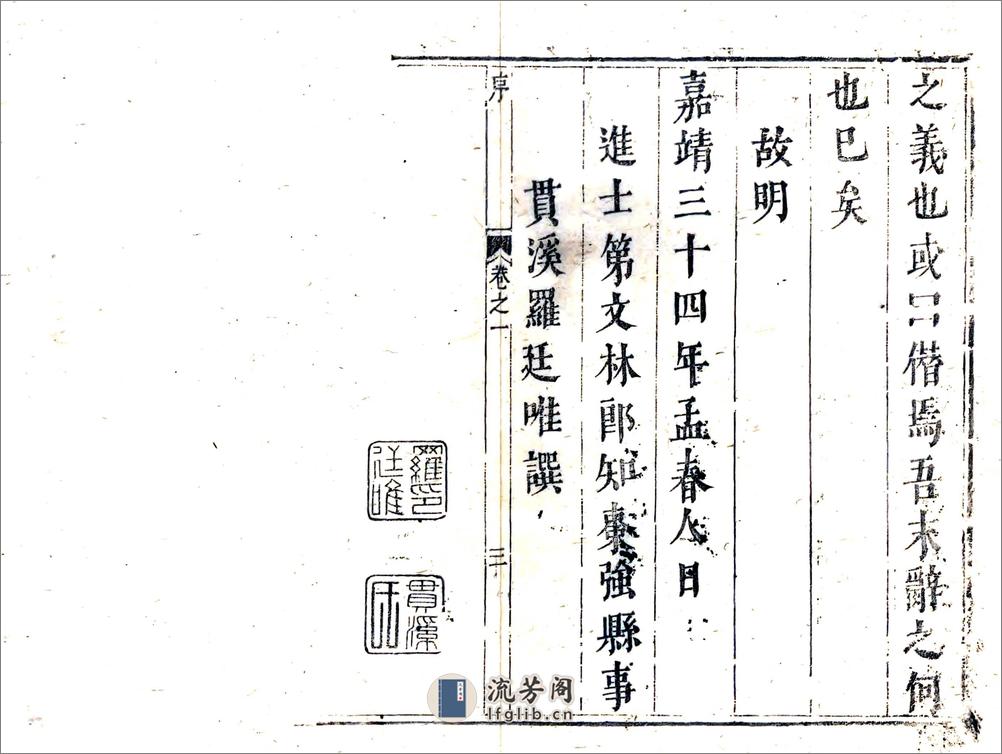 之義也或曰僭焉吾未辭之何
也巳矣
故明
嘉靖三十四年孟春人日
進士第文林郎知棗強縣事
貫溪羅廷唯譔
序 卷之一 三
羅廷唯印
貫溪
流芳阁
lfglib.cn